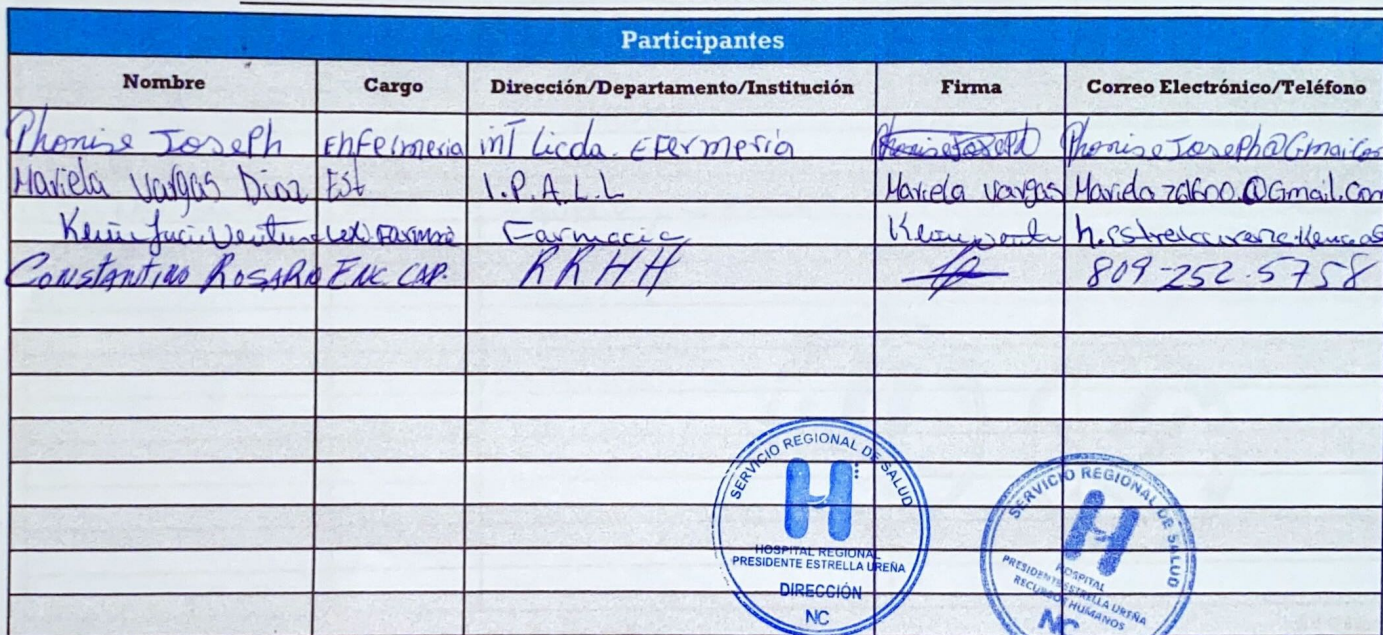 Participantes
Nombre Cargo Dirección/Departamento/Institución Firma Correo Electrónico/Teléfono
Phonise Joseph Enfelmeria inT Licda. EFermeria Phonise Joseph PhoniseJoseph@Gmail.com
Mariela Vargas Diaz Est I.P.A.L.L Mariela Vargas @Gmail.com
Farmacia
CONSTANTINO ROSARIO ENC. CAP. RRHH 809-252-5758
SERVICIO REGIONAL DE SALUD
H
HOSPITAL REGIONAL
PRESIDENTE ESTRELLA UREÑA
DIRECCIÓN
NC
SERVICIO REGIONAL DE SALUD
H
HOSPITAL
PRESIDENTE ESTRELLA UREÑA
RECURSOS HUMANOS
NC